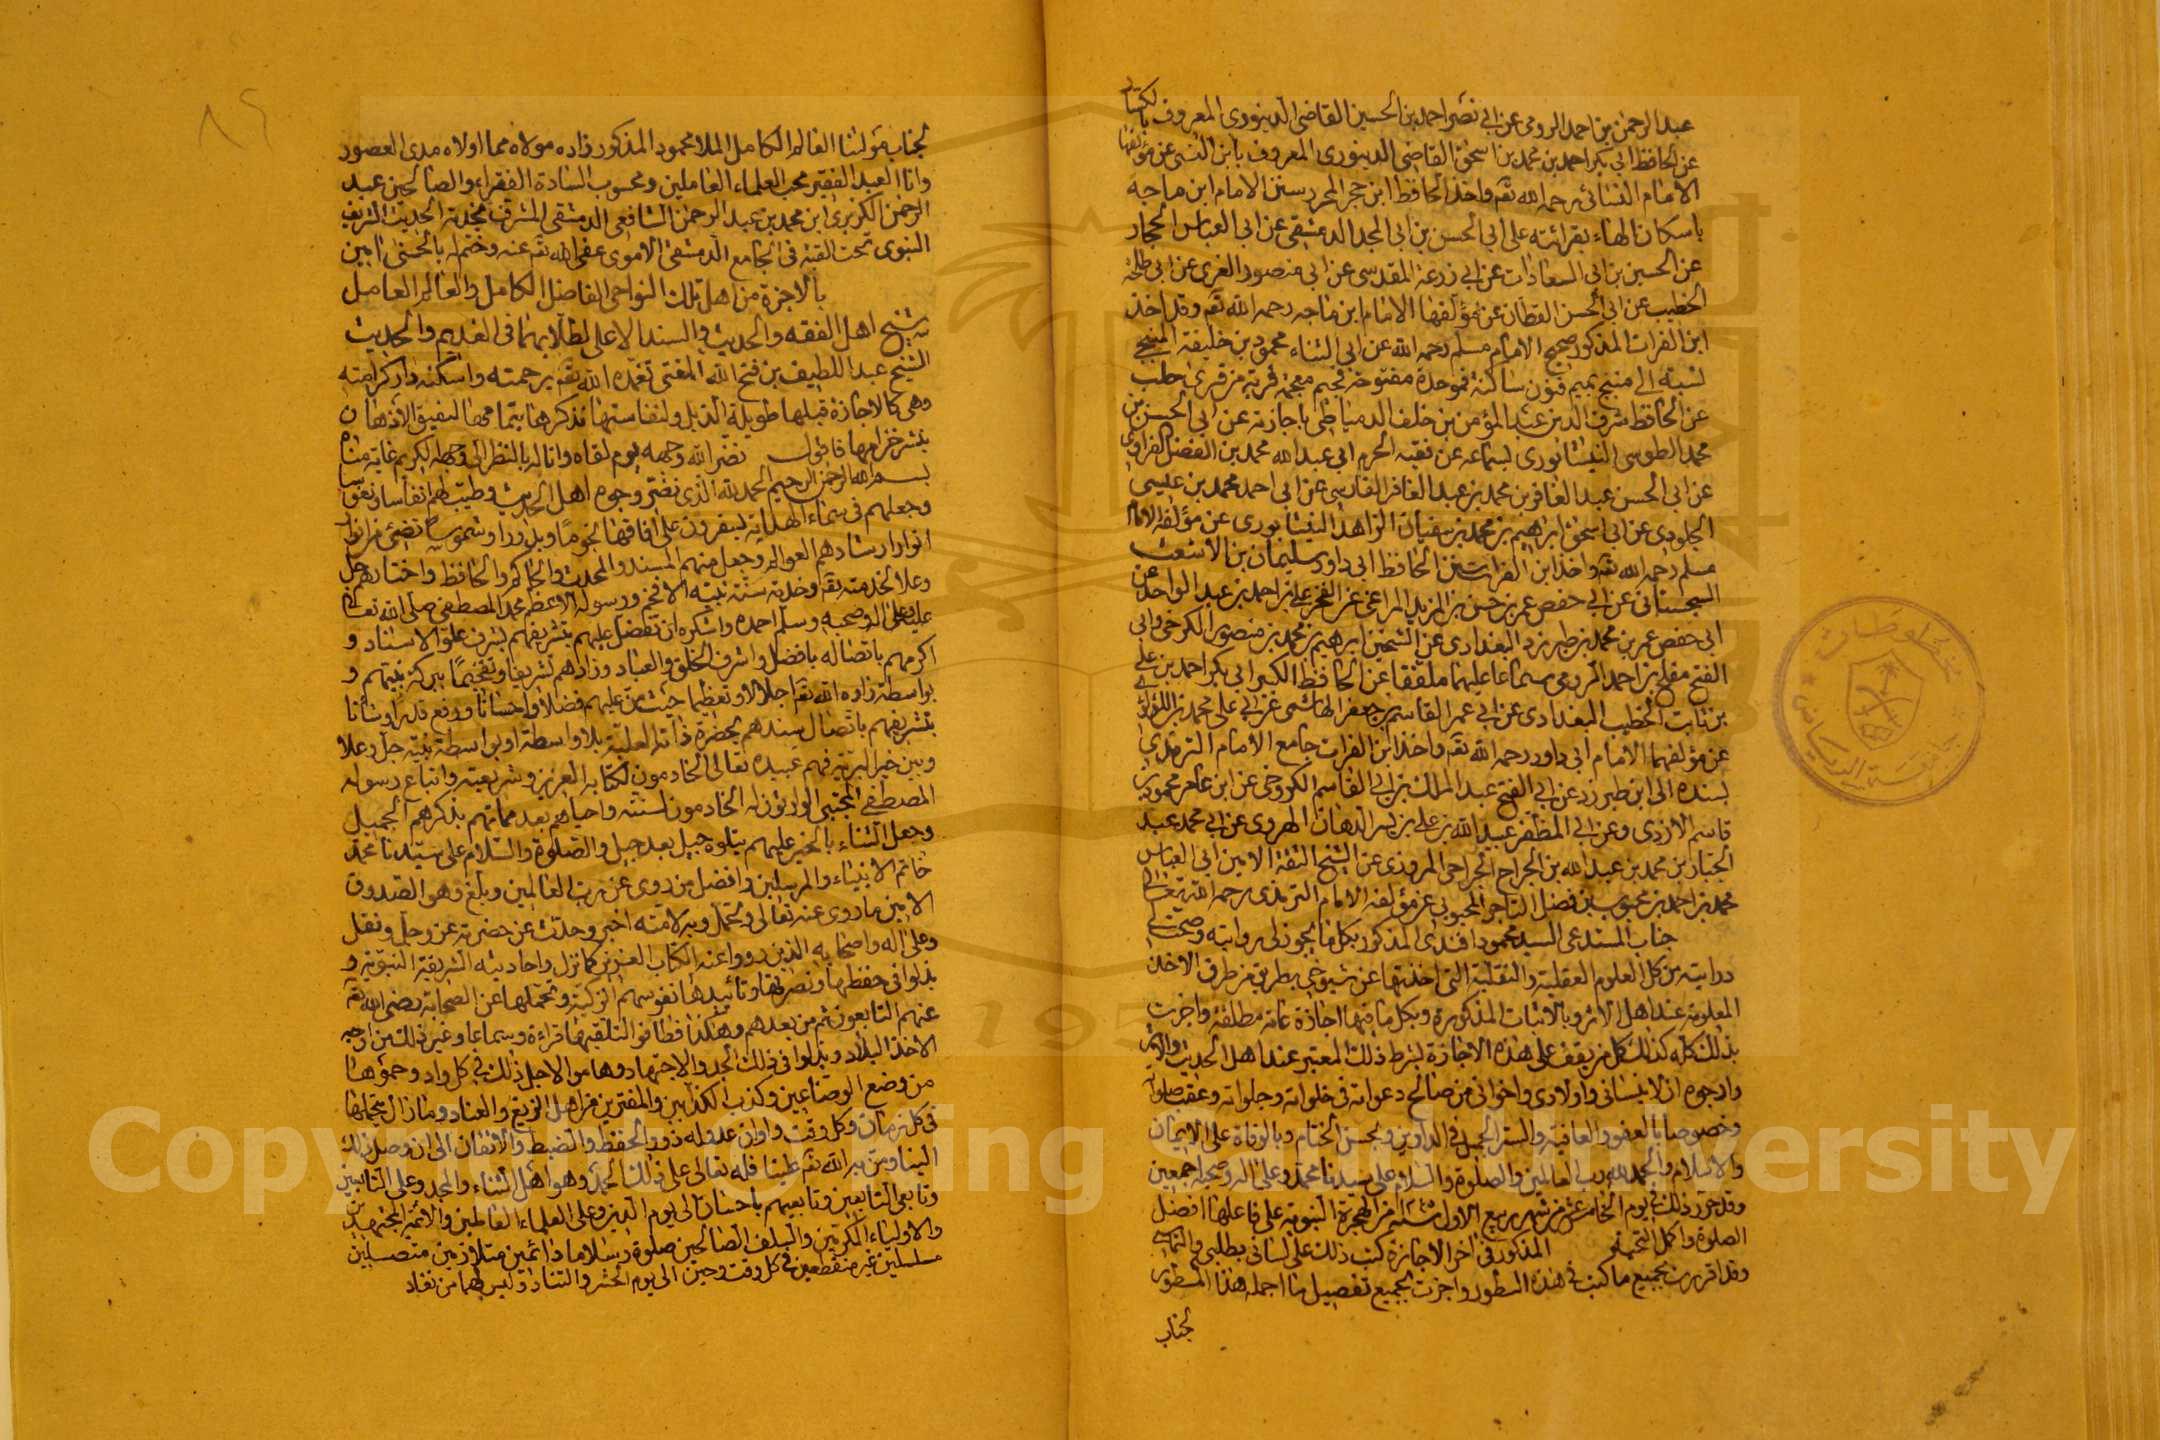 عبد الرحمن بن احمد الرومي عن ابي نصر احمد بن الحسين القاضي الدينوري المعروف بالكسار
عن الحافظ ابي بكر احمد بن محمد بن اسحق القاضي الدينوري المعروف بابن السني عن مؤلفها
الامام النسائي رحمه الله تع واخذ الحافظ ابن حجر المحرر سنن الامام ابن ماجه
باسكان الهاء بقرائته على ابي الحسن بن ابي المجد الدمشقي عن ابي العباس الحجار
عن الحسين بن ابي السعادات عن ابي زرعة المقدسي عن ابي منصور القزي عن ابي طلحة
الخطيب عن ابي الحسن القطان عن مؤلفها الامام ابن ماجه رحمه الله تع وقد اخذ
ابن الفرات المذكور صحيح الامام مسلم رحمه الله عن ابي الثناء محمود بن خليفة المنبجي
نسبة الى منبج بميم فنون ساكنة فموحدة مفتوحة فجيم معجمة قرية من قرى حلب
عن الحافظ شرف الدين عبد المؤمن بن خلف الدمياطي باجازته عن ابي الحسن بن
محمد الطوسي النيشابوري بسماعه عن فقيه الحرم ابي عبد الله محمد بن الفضل الفراوي
عن ابي الحسن عبد الغافر بن محمد بن عبد الغافر الفارسي عن ابي احمد محمد بن عيسى
الجلودي عن ابي اسحق ابراهيم بن محمد بن سفيان الزاهد النيشابوري عن مؤلفه الامام
مسلم رحمه الله تع واخذ ابن الفرات سنن الحافظ ابي داود سليمان بن الاشعث
السجستاني عن ابي حفص عمر بن حسن بن المزيد المراغي عن الفخر علي بن احمد بن عبد الواحد عن
ابي حفص عمر بن محمد بن طبرزد البغدادي عن الشيخين ابرهيم بن محمد بن منصور الكرخي وابي
الفتح مفلح بن احمد الرومي سماعا عليهما ملفقا عن الحافظ الكبير ابي بكر احمد بن علي
بن ثابت الخطيب البغدادي عن ابي عمر القاسم بن جعفر الهاشمي عن ابي علي محمد بن اللؤلؤي
عن مؤلفها الامام ابي داود رحمه الله تع واخذ ابن الفرات جامع الامام الترمذي
بسنده الى ابن طبرزد عن ابي الفتح عبد الملك بن ابي القاسم الكروخي عن ابن عامر محمود بن
قاسم الازدي وعن ابي المظفر عبيد الله بن علي بن يس الدهان الهروي عن ابي محمد عبد
الجبار بن محمد بن عبد الله بن الجراح الجراحي المروزي عن الشيخ الثقة الامين ابي العباس
محمد بن احمد بن محبوب بن فضل التاجر المحبوبي عن مؤلفه الامام الترمذي رحمه الله تعالى
جناب المستدعي السيد محمود افندي المذكور بكل ما يجوز لي روايته وصحت لي
درايته من كل العلوم العقلية والنقلية التي اخذتها عن شيوخي بطريق من طرق الاخذ
المعلومة عند اهل الاثر وبالاثبات المذكورة وبكل ما فيها اجازة عامة مطلقة واجزت
بذلك كله كذلك كل من يقف على هذه الاجازة بشرط ذلك المعتبر عند اهل الحديث والاثر
وارجوه ان لا ينساني واولادي واخواني من صالح دعواته في خلواته وجلواته وعقب صلواته
وخصوصا بالعفو والعافية والستر الجميل في الدارين وبحسن الختام وبالوفاة على الايمان
والاسلام والحمد لله رب العالمين والصلوة والسلام على سيدنا محمد وعلى اله وصحبه اجمعين
وقد حرر ذلك في يوم الخامس عشر من شهر ربيع الاول سنة من الهجرة النبوية على فاعلها افضل
الصلوة واكمل التحية المذكور في اخر الاجازة كتب ذلك على لساني بطلبي والتماسي
وقد اقررت بجميع ما كتب في هذه السطور واجزت بجميع تفصيل ما اجمله هذا المسطور
لجناب
٨٦
لجناب مولانا العالم الكامل الملا محمود المذكور زاده مولاه مما اولاه مدى العصور
وانا العبد الفقير محب العلماء العاملين ومحسوب السادة الفقراء والصالحين عبد
الرحمن الكزبري ابن محمد بن عبد الرحمن الشافعي الدمشقي المشرف بخدمة الحديث الشريف
النبوي تحت القبة في الجامع الدمشقي الاموي عفى الله تع عنه وختم له بالحسنى امين
بالاجزة من اهل تلك النواحي الفاضل الكامل والعالم العامل
شيخ اهل الفقه والحديث والسند الاعلى لطلابهما في القديم والحديث
الشيخ عبد اللطيف بن فتح الله المفتي تغمده الله تع برحمته واسكنه دار كرامته
وهي كالاجازة قبلها طويلة الذيل ولنفاستها نذكرها بتمامها لتفيق الاذهان
بنشر خزامها فاقول نضر الله وجهه يوم لقاه واناله بالنظر الى وجهه الكريم غاية مناه
بسم الله الرحمن الرحيم الحمد لله الذي نضر وجوه اهل الحديث وطيب لهم انفاسا ونفوسا
وجعلهم في سماء الهداية يسفرون على افاقها نجوما وبدورا وشموسا تضئ من انوار
انوار ارشادهم العوالم وجعل منهم المسند والمحدث والحاكم والحافظ واختارهم جل
وعلا لخدمته تع وخدمة سنة نبيه الافخم ورسوله الاعظم محمد المصطفى صلى الله تعالى
عليه وعلى اله وصحبه وسلم احمده واشكره ان تفضل عليهم بتشريفهم بشرف علو الاسناد و
اكرمهم باتصاله بافضل واشرف الخلق والعباد وزادهم تشريفا وتفخيما ببركة نبيهم و
بواسطة زاده الله تع اجلالا وتعظيما حيث من عليهم فضلا واحسانا ورفع قدرا وشأنا
بتشريفهم باتصال سندهم بحضرة ذاته العلية بلا واسطة او بواسطة نبيه جل وعلا
وبين خير البرية فهم عبيده تعالى الخادمون لكتابه العزيز وشريعته واتباع رسوله
المصطفى المجتبى الوارثون له الخادمون لسنته واحياهم بعد مماتهم بذكرهم الجميل
وجعل الثناء بالخير عليهم يتلوه جيل بعد جيل والصلوة والسلام على سيدنا محمد
خاتم الانبياء والمرسلين وافضل من روى عن رب العالمين وبلغ وهو الصدوق
الامين ما روى عنه تعالى وتحمل وبه لامته اخبر وحدث عن حضرته عز وجل ونقل
وعلى اله واصحابه الذين رووا عنه الكتاب العزيز كما نزل واحاديثه الشريفة النبوية و
بذلوا في حفظها ونصرتها وتأييدها نفوسهم الزكية وتحملها عن الصحابة رضي الله تع
عنهم التابعون ثم من بعدهم وهكذا فطافوا لتلقيها قراءة وسماعا وغير ذلك من اوجه
الاخذ البلاد وبذلوا في ذلك الجد والاجتهاد وهاموا لاجل ذلك في كل واد وحموها
من وضع الوضاعين وكذب الكذابين والمفترين من اهل الزيغ والعناد وما زال يتحملها
في كل زمان وكل وقت واوان عدوله ذوو الحفظ والضبط والاتقان الى ان وصل ذلك
الينا ومن به الله تع علينا فله تعالى على ذلك الحمد وهو اهل الثناء والمجد وعلى التابعين
وتابعي التابعين وتابعيهم باحسان الى يوم الدين وعلى العلماء العاملين والائمة المجتهدين
والاولياء المكرمين والسلف الصالحين صلوة وسلاما دائمين متلازمين متصلين
مسلسلين غير منقطعين في كل وقت وحين الى يوم الحشر والتناد وليس لهما من نفاد
مخطوطات
جامعة الرياض
Copyright © King Saud University
195